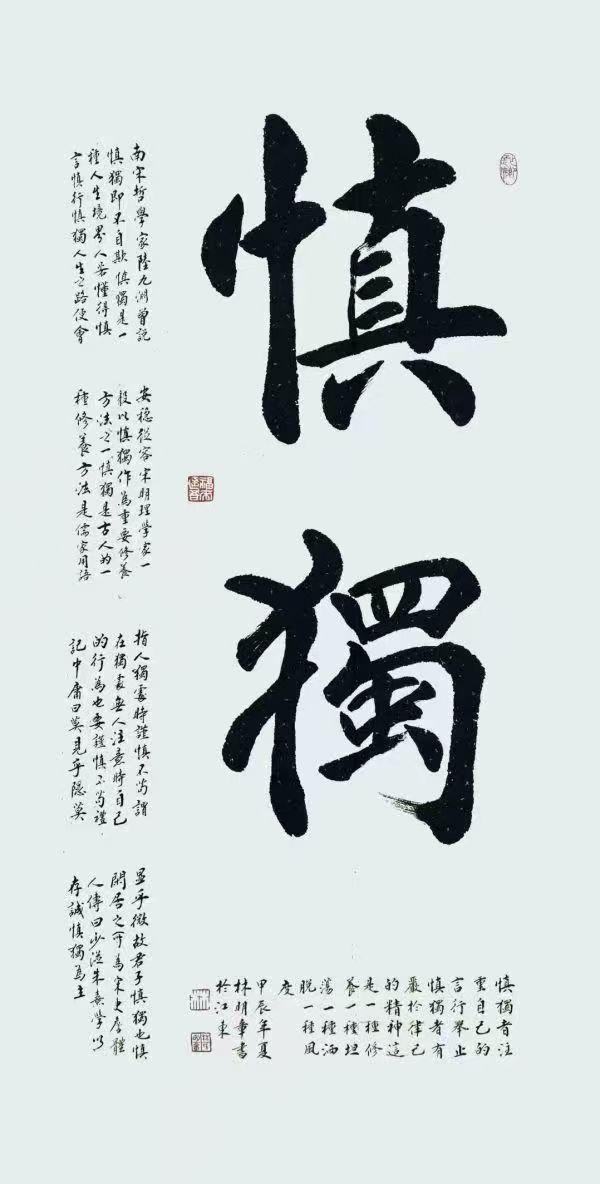 慎獨
南宋哲學家陸九渊曾說
慎獨即不自欺慎獨是一
種人生境界人若懂得慎
言慎行慎獨人生之路便會
安穩從容宋明理學家一
般以慎獨作為重要修養
方法之一慎獨是古人的一
種修養方法是儒家用語
指人獨處時謹慎不苟謂
在獨處無人注意時自己
的行為也要謹慎不苟禮
記中庸曰莫見乎隱莫
显乎微故君子慎獨也慎
閑居之所為宋史詹體
人傳曰少從朱熹學以
存誠慎獨為主
慎獨者注
重自己的
言行舉止
慎獨者有
嚴於律己
的精神這
是一種修
養一種坦
蕩一種洒
脫一種風
度
甲辰年夏
林明章書
於江東